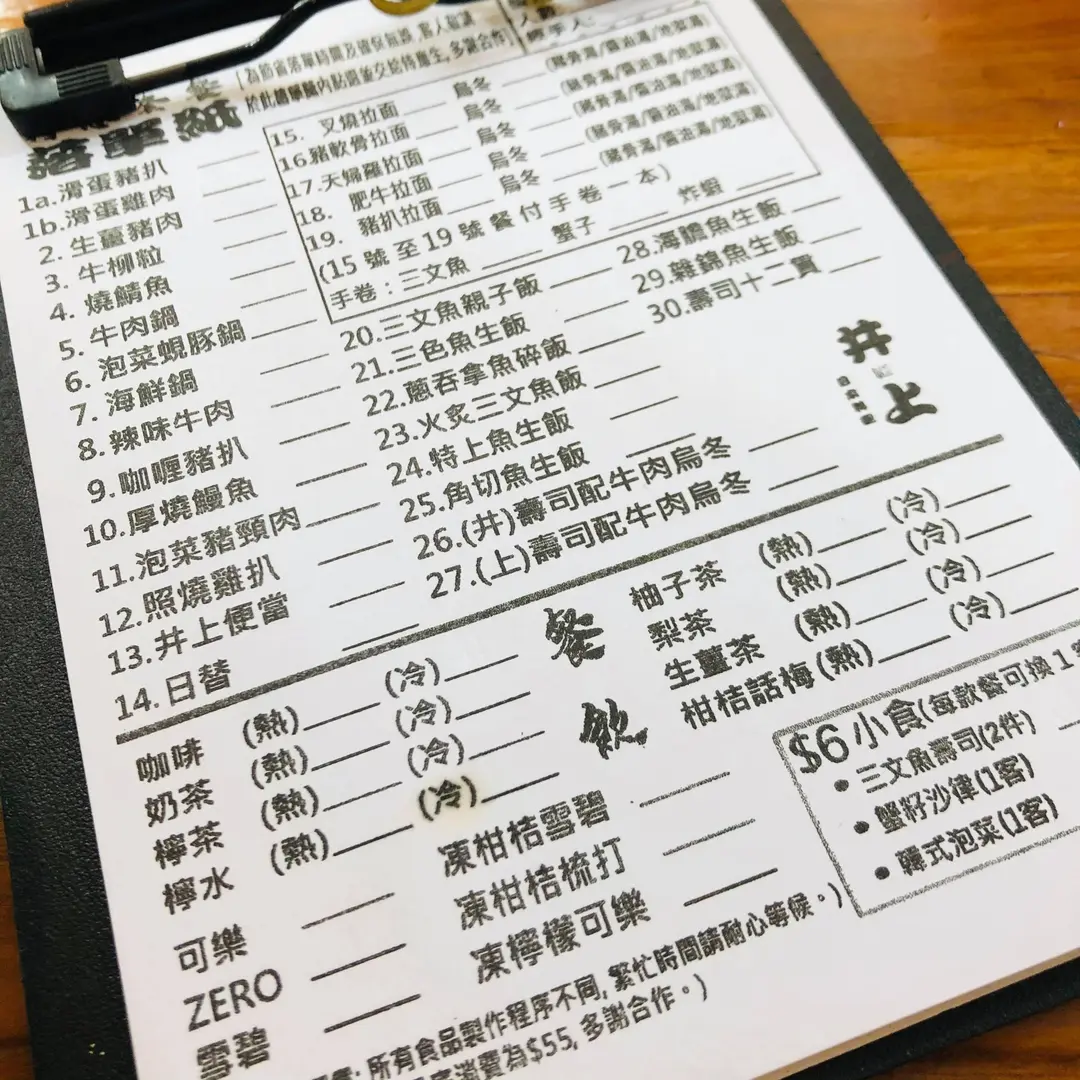 [為節省落單時間及確保無誤, 客人敬請
於此牆單輪內點選後交給侍應生, 多謝合作]
落單紙
1a.滑蛋豬扒
1b.滑蛋雞肉
2. 生薑豬肉
3. 牛柳粒
4. 燒鯖魚
5. 牛肉鍋
6. 泡菜蜆豚鍋
7. 海鮮鍋
8. 辣味牛肉
9. 咖喱豬扒
10.厚燒鰻魚
11.泡菜豬頸肉
12.照燒雞扒
13.井上便當
14.日替
15. 叉燒拉面 烏冬 (豬骨湯/醬油湯/地獄湯)
16豬軟骨拉面 烏冬 (豬骨湯/醬油湯/地獄湯)
17.天婦羅拉面 烏冬 (豬骨湯/醬油湯/地獄湯)
18. 肥牛拉面 烏冬 (豬骨湯/醬油湯/地獄湯)
19. 豬扒拉面 烏冬 (豬骨湯/醬油湯/地獄湯)
(15 號 至 19 號 餐 付 手 卷 一 本)
手卷 : 三文魚 蟹子 炸蝦
20.三文魚親子飯
21.三色魚生飯
22.蔥吞拿魚碎飯
23.火炙三文魚飯
24.特上魚生飯
25.角切魚生飯
26.(井)壽司配牛肉烏冬
27.(上)壽司配牛肉烏冬
28.海膽魚生飯
29.雜錦魚生飯
30.壽司十二貫
井上
餐飲
咖啡 (熱) (冷)
奶茶 (熱) (冷)
檸茶 (熱) (冷)
檸水 (熱) (冷)
可樂
ZERO
雪碧
凍柑桔雪碧
凍柑桔梳打
凍檸檬可樂
柚子茶 (熱) (冷)
梨茶 (熱) (冷)
生薑茶 (熱) (冷)
柑桔話梅 (熱) (冷)
$6小食(每款餐可換1
• 三文魚壽司(2件)
• 蟹籽沙律(1客)
• 韓式泡菜(1客)
所有食品製作程序不同, 繁忙時間請耐心等候。)
消費為$55, 多謝合作。)